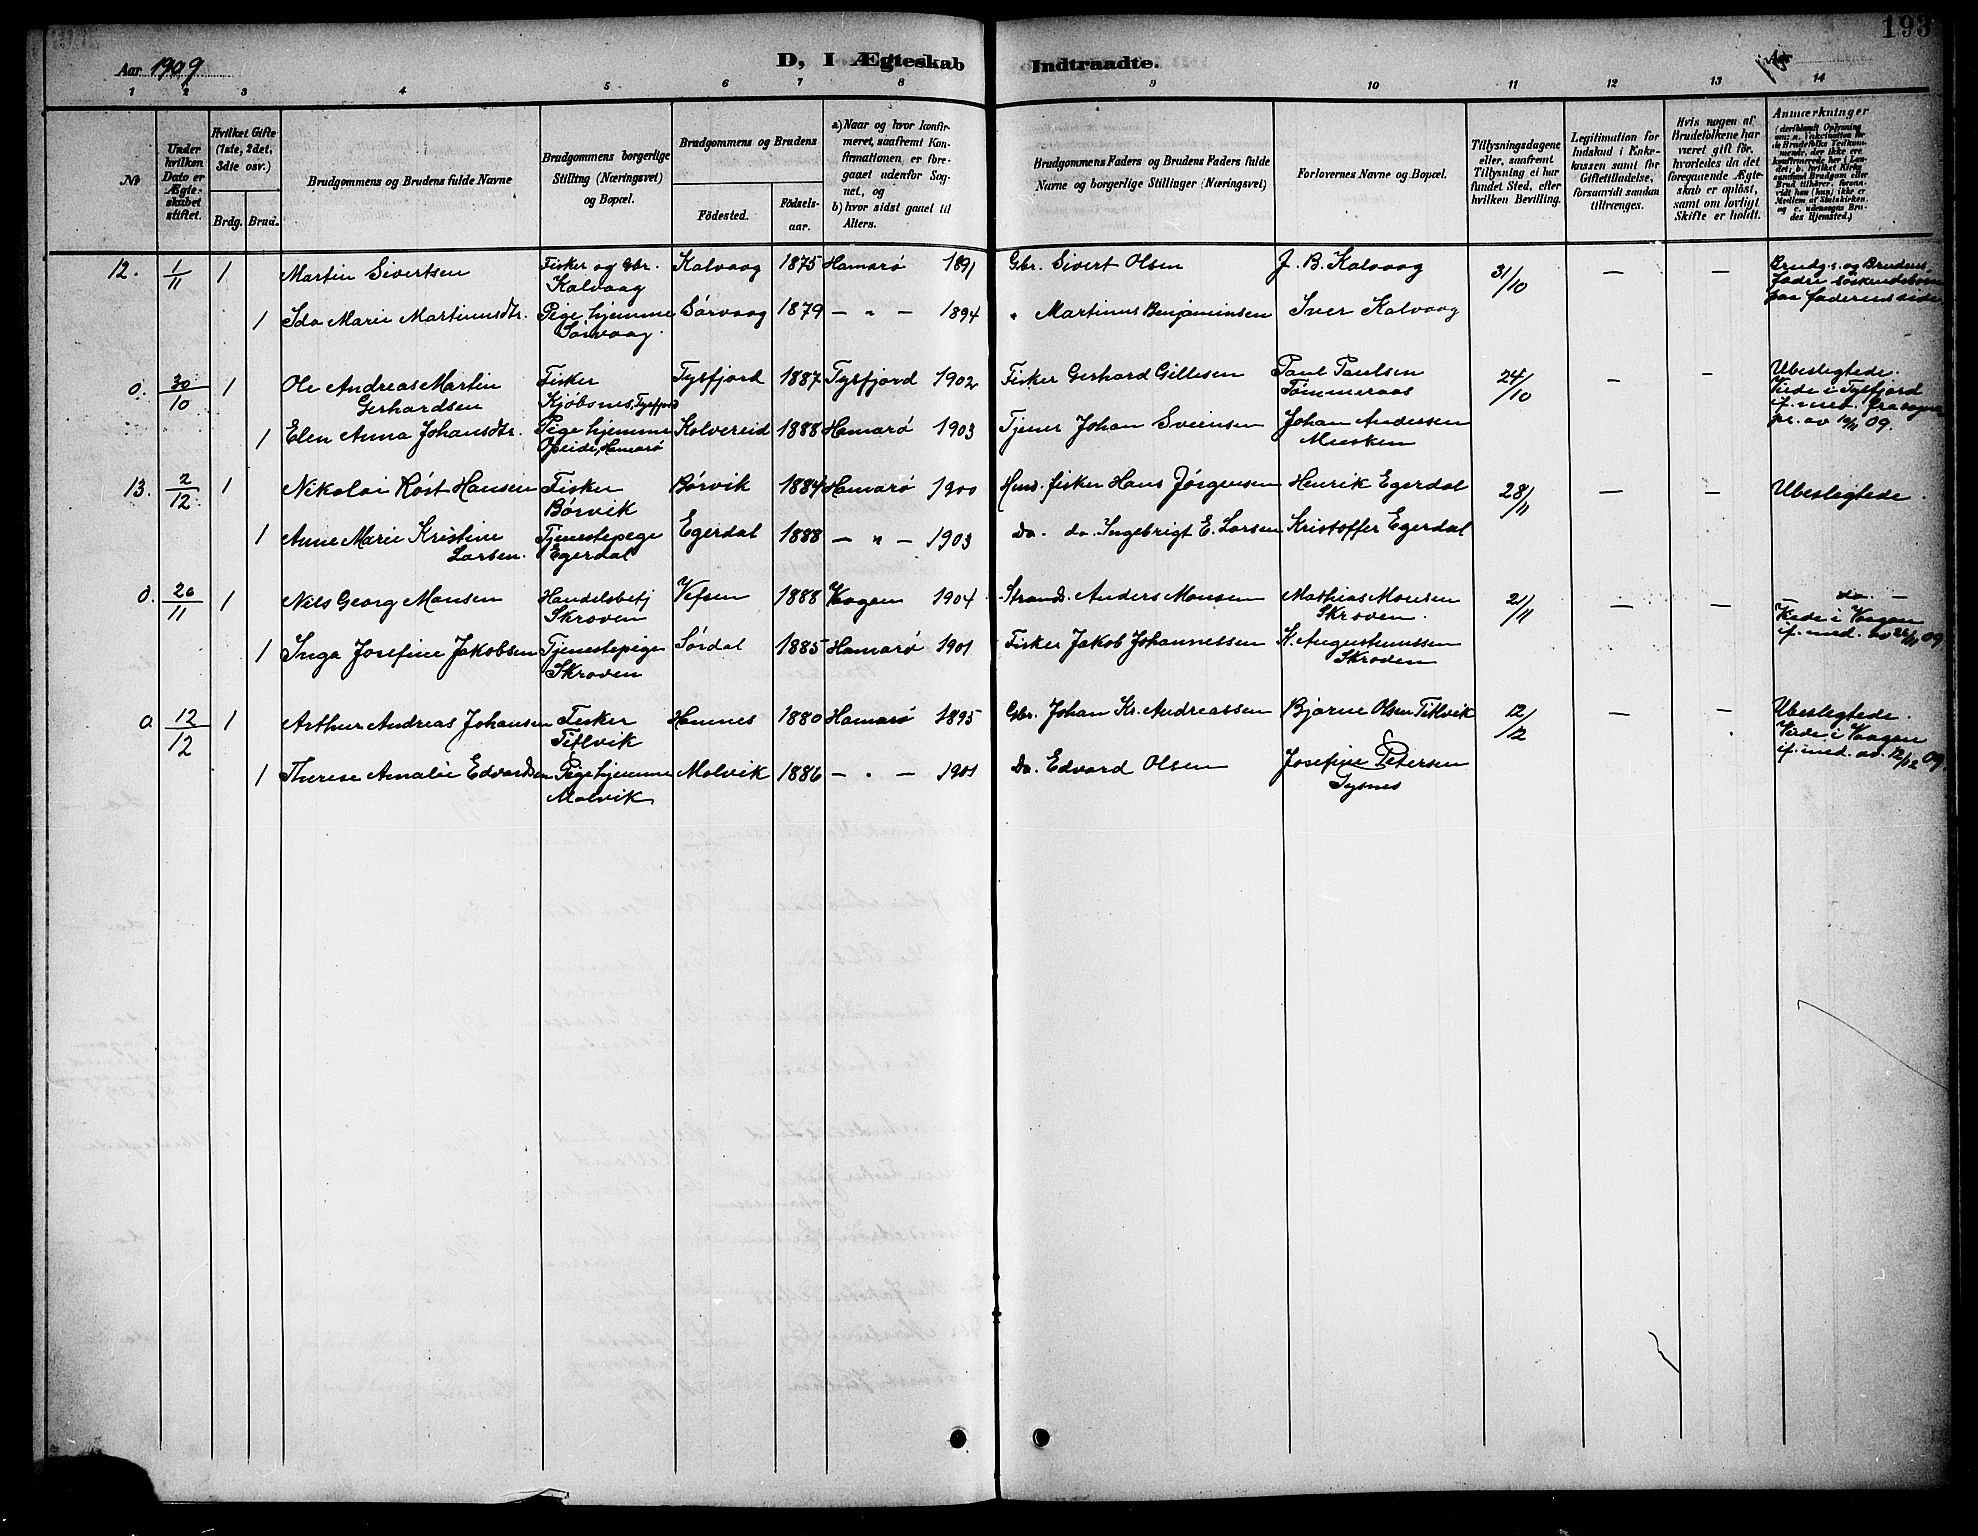 193
Aar 1909
D, I Ægteskab Indtraadte.
1 2 3 4 5 6 7 8 9 10 11 12 13 14
No
Under hvilken Dato er Ægteskabet stiftet.
Hvilket Gifte (1ste, 2det, 3die osv.)
Brdg. Brud.
Brudgommens og Brudens fulde Navne
Brudgommens borgerlige Stilling (Næringsvei) og Bopæl.
Brudgommens og Brudens
Födested. Födselsaar.
a) Naar og hvor konfirmeret, saafremt Konfirmationen er foregaaet udenfor Sognet, og
b) hvor sidst gaaet til Alters.
Brudgommens Faders og Brudens Faders fulde Navne og borgerlige Stillinger (Næringsvei)
Forlovernes Navne og Bopæl.
Tillysningsdagene eller, saafremt Tillysning ei har fundet Sted, efter hvilken Bevilling.
Legitimation for Indskud i Enkekassen samt for Giftetilladelse, forsaavidt saadan tiltrænges.
Hvis nogen af Brudefolkene har været gift för, hvorledes da det foregaaende Ægteskab er oplöst, samt om lovligt Skifte er holdt.
Anmærkninger
12. 1/11 1 Martin Sivertsen Fisker og Gbr. Kalvaag Kalvaag 1875 Hamarø 1891 Gbr. Sivert Olsen J. B. Kalvaag 31/10 — — Brudg.s. og Brudens fædre söskendebörn paa faderens side.
1 Ida Marie Martinusdtr. Pige hjemme Sørvaag. Sørvaag 1879 — " — 1894 " Martinus Benjaminsen Iver Kalvaag
0. 30/10 1 Ole Andreas Martin Gerhardsen Fisker Kjøbsnes, Tysfjord Tysfjord 1887 Tysfjord 1902 Fisker Gerhard Gillesen Paul Paulsen Tømmeraas 24/10 — — Ubeslegtede. Viede i Tysfjord
1 Elen Anna Johansdtr. Pige hjemme Opeide, Hamarø Kalvereid 1888 Hamarø 1903 Tjener Johan Sveinsen Johan Andersen Musken
13. 2/12 1 Nikolai Røst Hansen Fisker Børvik Børvik 1884 Hamarø 1900 Hmd. fisker Hans Jørgensen Henrik Egerdal 28/11 — — Ubeslegtede.
1 Anne Marie Kristine Larsen. Tjenestepige Egerdal Egerdal 1888 — " — 1903 Do. do. Ingebrigt E. Larsen Kristoffer Egerdal
0. 26/11 1 Nils Georg Monsen Handelsbetj Skroven Vefsen 1888 Vaagen 1904 Strands. Anders Monsen Mathias Monsen Skroven. 21/11 — — do. — Viede i Vaagen if. med. av 22/11 09
1 Inga Josefine Jakobsen Tjenestepige Skroven Sørdal 1885 Hamarø 1901 Fisker Jakob Johannessen K. Augustinussen Skroven
0 12/12 1 Arthur Andreas Johansen Fisker Tillvik Hamnes 1880 Hamarø 1895 Gbr. Johan Kr. Andreassen Bjarne Olsen Tillvik 12/12 — — Ubeslegtede. Viede i Vaagen if. med. av. 12/12 09.
1 Therese Amalie Edvardsen Pige hjemme Molvik Molvik 1886 — " — 1901 Do. Edvard Olsen Josefine Petersen Tysnes